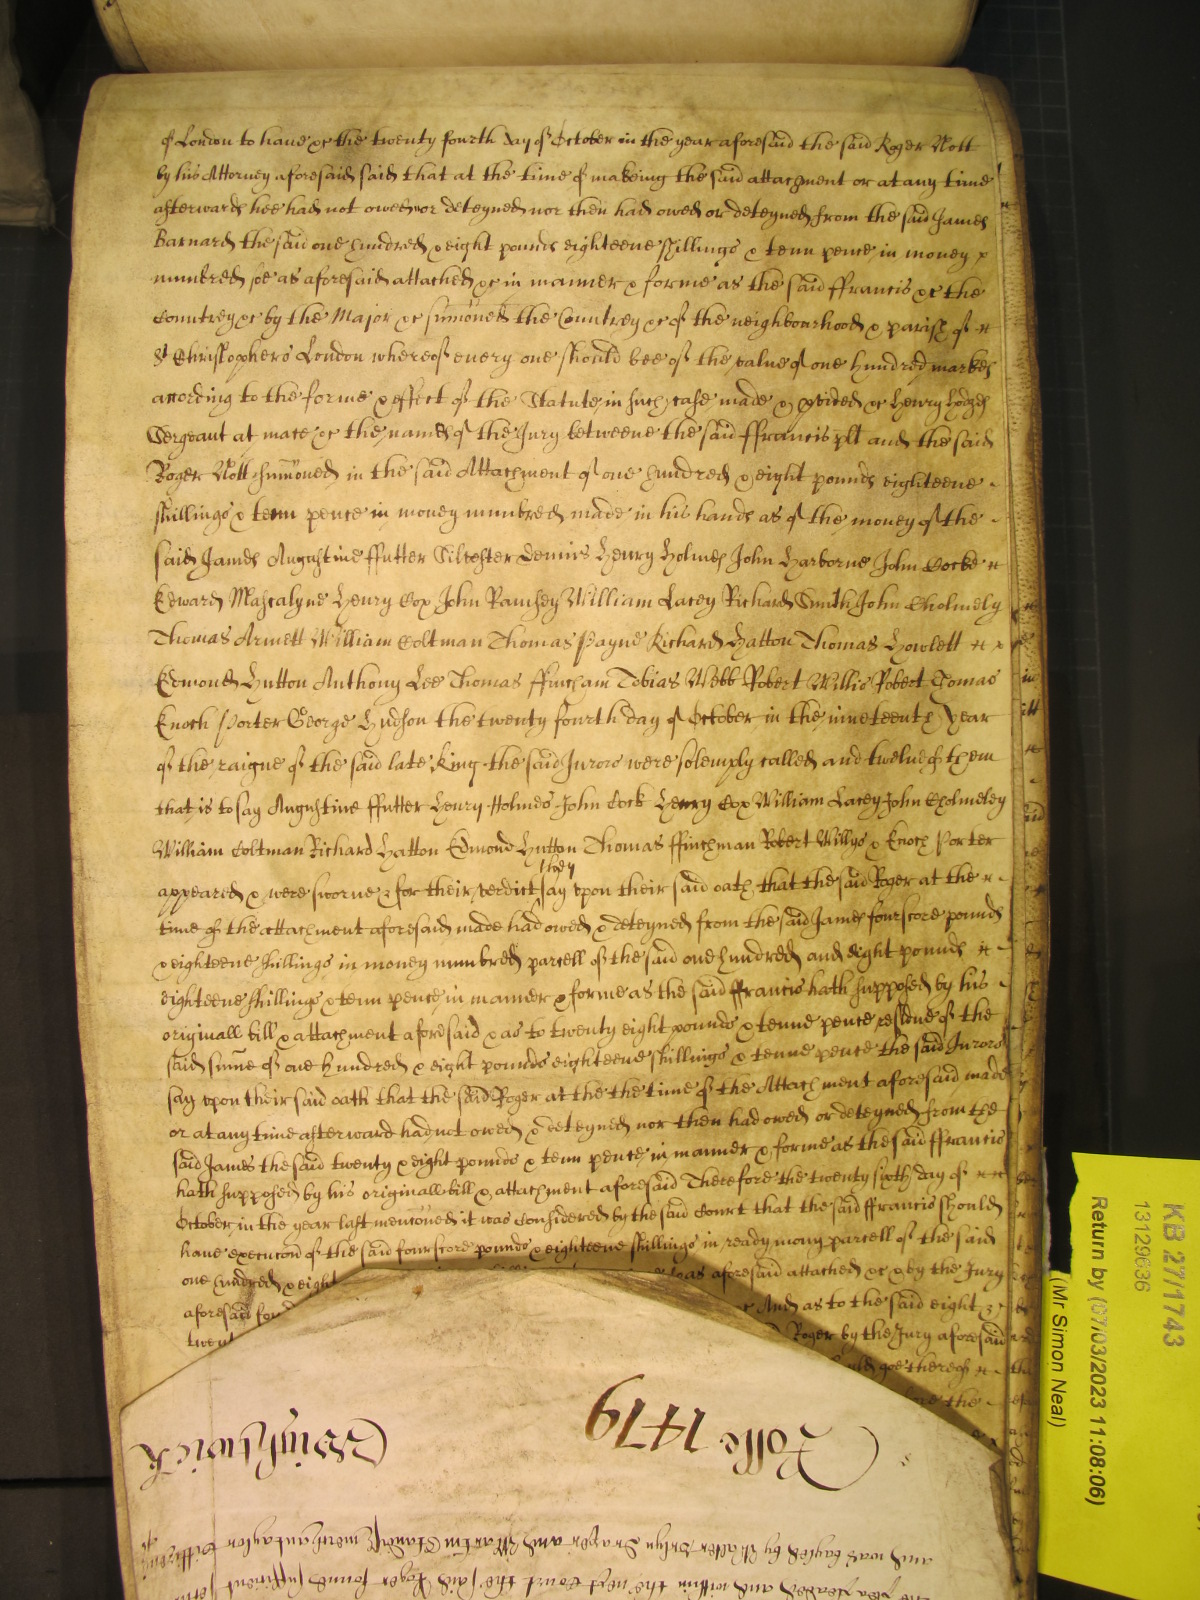 of London to have &c the twenty fourth day of October in the year aforesaid the said Roger Nott
by his Attorney aforesaid said that at the time of makeing the said attachment or at any time
afterwards hee had not owed nor deteyned nor then had owed or deteyned from the said James
Barnard the said one hundred & eight pounds eighteene shillings & tenn pence in money
numbred soe as aforesaid attached &c in manner & forme as the said ffrancis &c the
Countrey &c by the Major &c sumoned the Countrey &c of the neighbourhood & parish of
St Christophers London whereof every one should bee of the value of one hundred markes
according to the forme & effect of the Statute in such case made & pvided &c Henry Hodges
Sergeant at mace &c the names of the Jury betweene the said ffrancis plt and the said
Roger Nott sumoned in the said Attachment of one hundred & eight pounds eighteene
shillings & tenn pence in money numbred made in his hands as of the money of the
said James Augustine ffutter Silvester Dennis Henry Holmes John Harborne John Cocke
Edward Mascalyne Henry Cox John Ramsey William Lacey Richard Smith John Cholmely
Thomas Arnett William Coltman Thomas Payne Richard Hatton Thomas Howlett
Edmond Hutton Anthony Lee Thomas ffincham Tobias Webb Robert Willis Robert Tomas
Enoch Porter George Hudson the twenty fourth day of October in the nineteenth year
of the raigne of the said late King the said Jurors were solemply called and twelve of them
that is to say Augustine ffutter Henry Holmes John Cock Henry Cox William Lacey John Cholmeley
William Coltman Richard Hatton Edmond Hutton Thomas ffinchman Robert Willys & Enoch Porter
appeared & were sworne & for their verdict they say upon their said oath that the said Roger at the
time of the attachment aforesaid made had owed & deteyned from the said James fourscore pounds
& eighteene shillings in money numbred parcell of the said one hundred and eight pounds
eighteene shillings & tenn pence in manner & forme as the said ffrancis hath supposed by his
originall bill & attachment aforesaid & as to twenty eight pounds & tenne pence residue of the
said sume of one hundred & eight pounds eighteene shillings & tenne pence the said Jurors
say upon their said oath that the said Roger at the the time of the Attachment aforesaid made
or at any time afterward had not owed & deteyned nor then had owed or deteyned from the
said James the said twenty & eight pounds & tenn pence in manner & forme as the said ffrancis
hath supposed by his originall bill & attachment aforesaid Therefore the twenty sixth day of
October in the year last mencioned it was considered by the said Court that the said ffrancis should
have execucon of the said fourscore pounds & eighteene shillings in ready mony parcell of the said
one hundred & eight as aforesaid attached &c & by the Jury
aforesaid And as to the said eight &
twent Roger by the Jury aforesaid
goe thereof
the
Rolle 1479
KB 27/1743
13129636
Return by (07/03/2023 11:08:06)
(Mr Simon Neal)